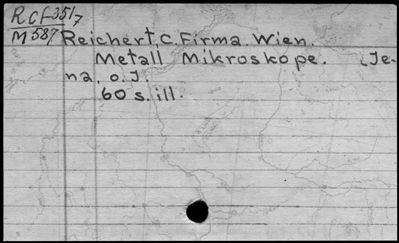 R Cf-351/7
M587 Reichert, C. Firma. Wien.
Metall Mikroskope. [Je-
na, o.J.
60 s. ill.